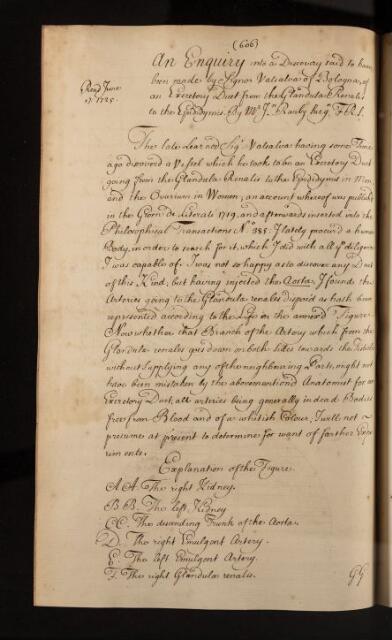 (606)
An Enquiry into a Discovery said to have
been made by Signor Valsalva of Bologna, of
an Excretory Duct from the Glandula Renalis
to the Epididymis. By Mr. Jn. Ranby Surgn. F.R.S.
Read June
17. 1725.
The late Learned Sigr. Valsalva having some Time
ago discovered a Vessel which he took to be an Excretory Duct
going from the Glandula Renalis to the Epididymis in Men
and the Ovarium in Women, an account whereof was publish'd
in the Giorn. de Literati 1719, and afterwards inserted into the
Philosophical Transactions No. 385: I lately procured a human
Body, in order to search for it, which I did with all ye diligence
I was capable of. I was not so happy as to discover any Duct
of this Kind, but having injected the Aorta, I found the
Arteries going to the Glandula renales dispos'd as hath been
represented according to the Life in the annex'd Figure
Now whether that Branch of the Artery which from the
Glandula renales goes down on both sides towards the Testicles
without supplying any of the neighbouring Parts, might not
have been mistaken by the abovementioned Anatomist for an
Excretory Duct, all arteries being generally in dead Bodies
free from Blood and of a whitish Colour, I will not
presume at present to determine for want of farther Expe
riments.
Explanation of the Figure.
A A. The right Kidney.
B B. The left Kidney
C C. The descending Trunk of the Aorta.
D. The right Emulgent Artery.
E. The left Emulgent Artery.
F. The right Glandula renalis.